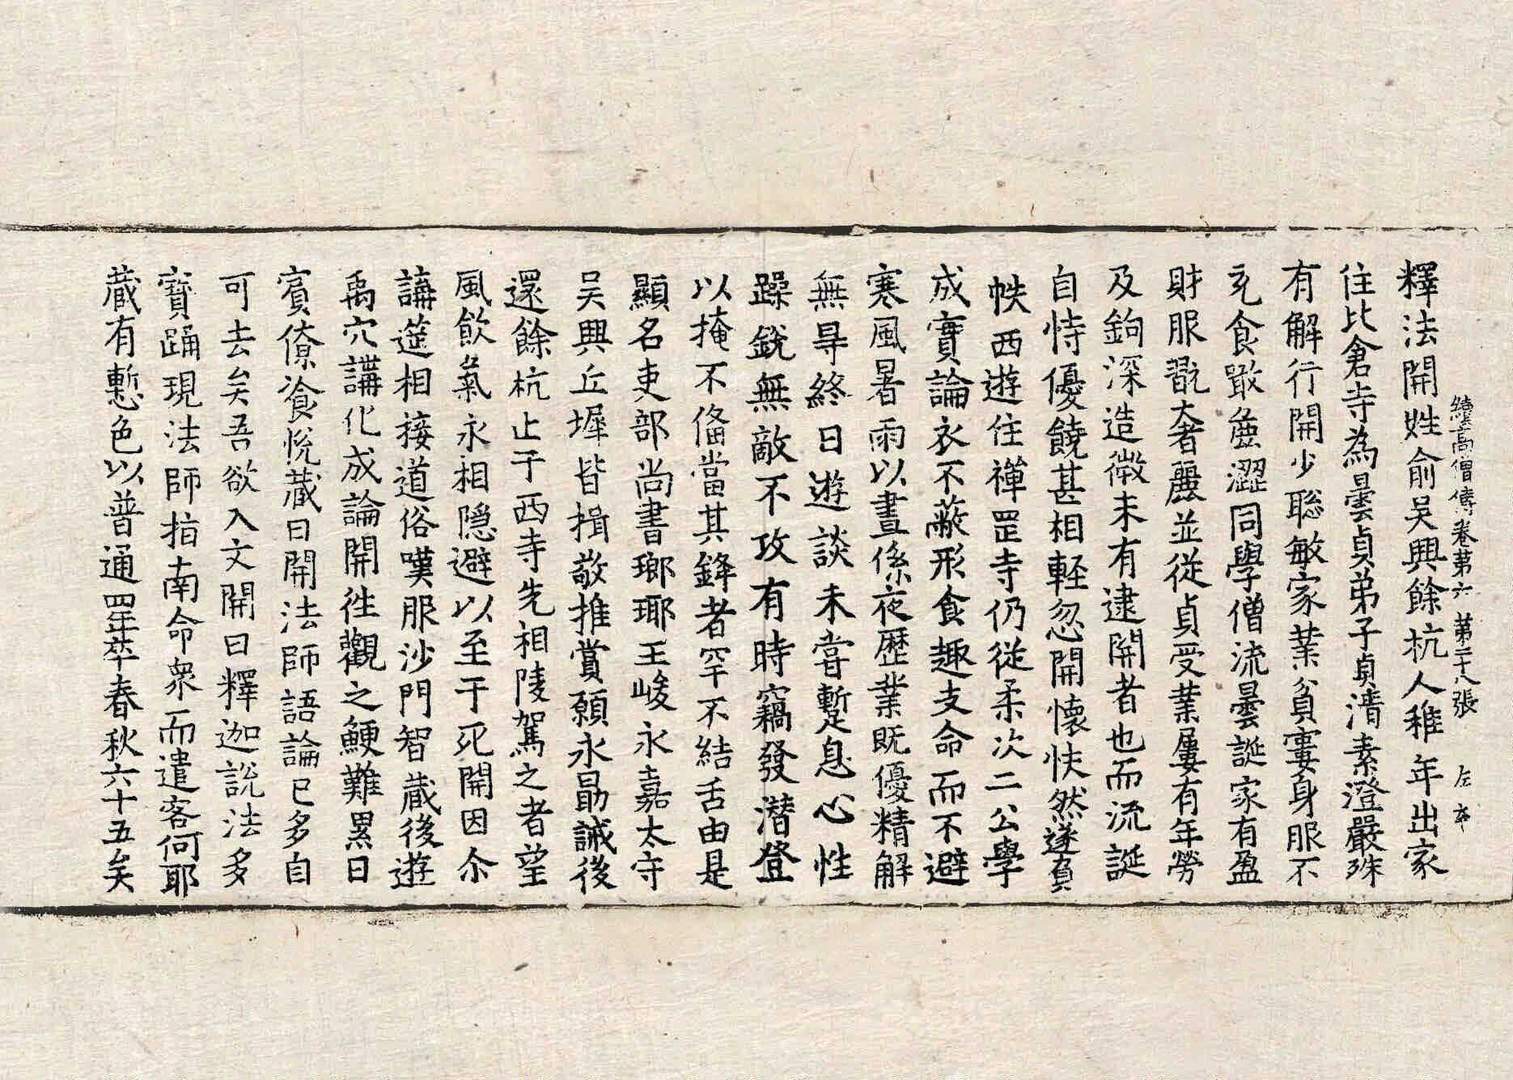 續高僧傳卷第六 第二十八張 左
釋法開姓俞吳興餘杭人稚年出家
住北倉寺為曇貞弟子貞清素澄嚴殊
有解行開少聡敏家業貧寠身服不
充食噉麁澀同學僧流曇誕家有盈
財服翫奢麗並從貞受業屢有年勞
及鉤深造微未有逮開者也而流誕
自恃優饒甚相輕忽開懷怏然遂負
帙西遊住禪罡寺仍從柔次二公學
成實論衣不蔽形食趣支命而不避
寒風暑雨以晝係夜歷業旣優精解
無㝵終日遊談未嘗蹔息心性
躁銳無敵不攻有時竊發潛登
以掩不俻當其鋒者罕不結舌由是
顯名吏部尚書瑯琊王峻永嘉太守
吳興丘墀皆揖敬推賞願永勗誡後
還餘杭止于西寺先相陵駕之者望
風飲氣永相隠避以至于死開因尒
講筵相接道俗嘆服沙門智藏後遊
禹穴講化成論開往觀之鯁難累日
賓僚飡悅藏曰開法師語論已多自
可去矣吾欲入文開曰釋迦說法多
寶踊現法師指南命衆而遣客何耶
藏有慙色以普通四年卒春秋六十五矣